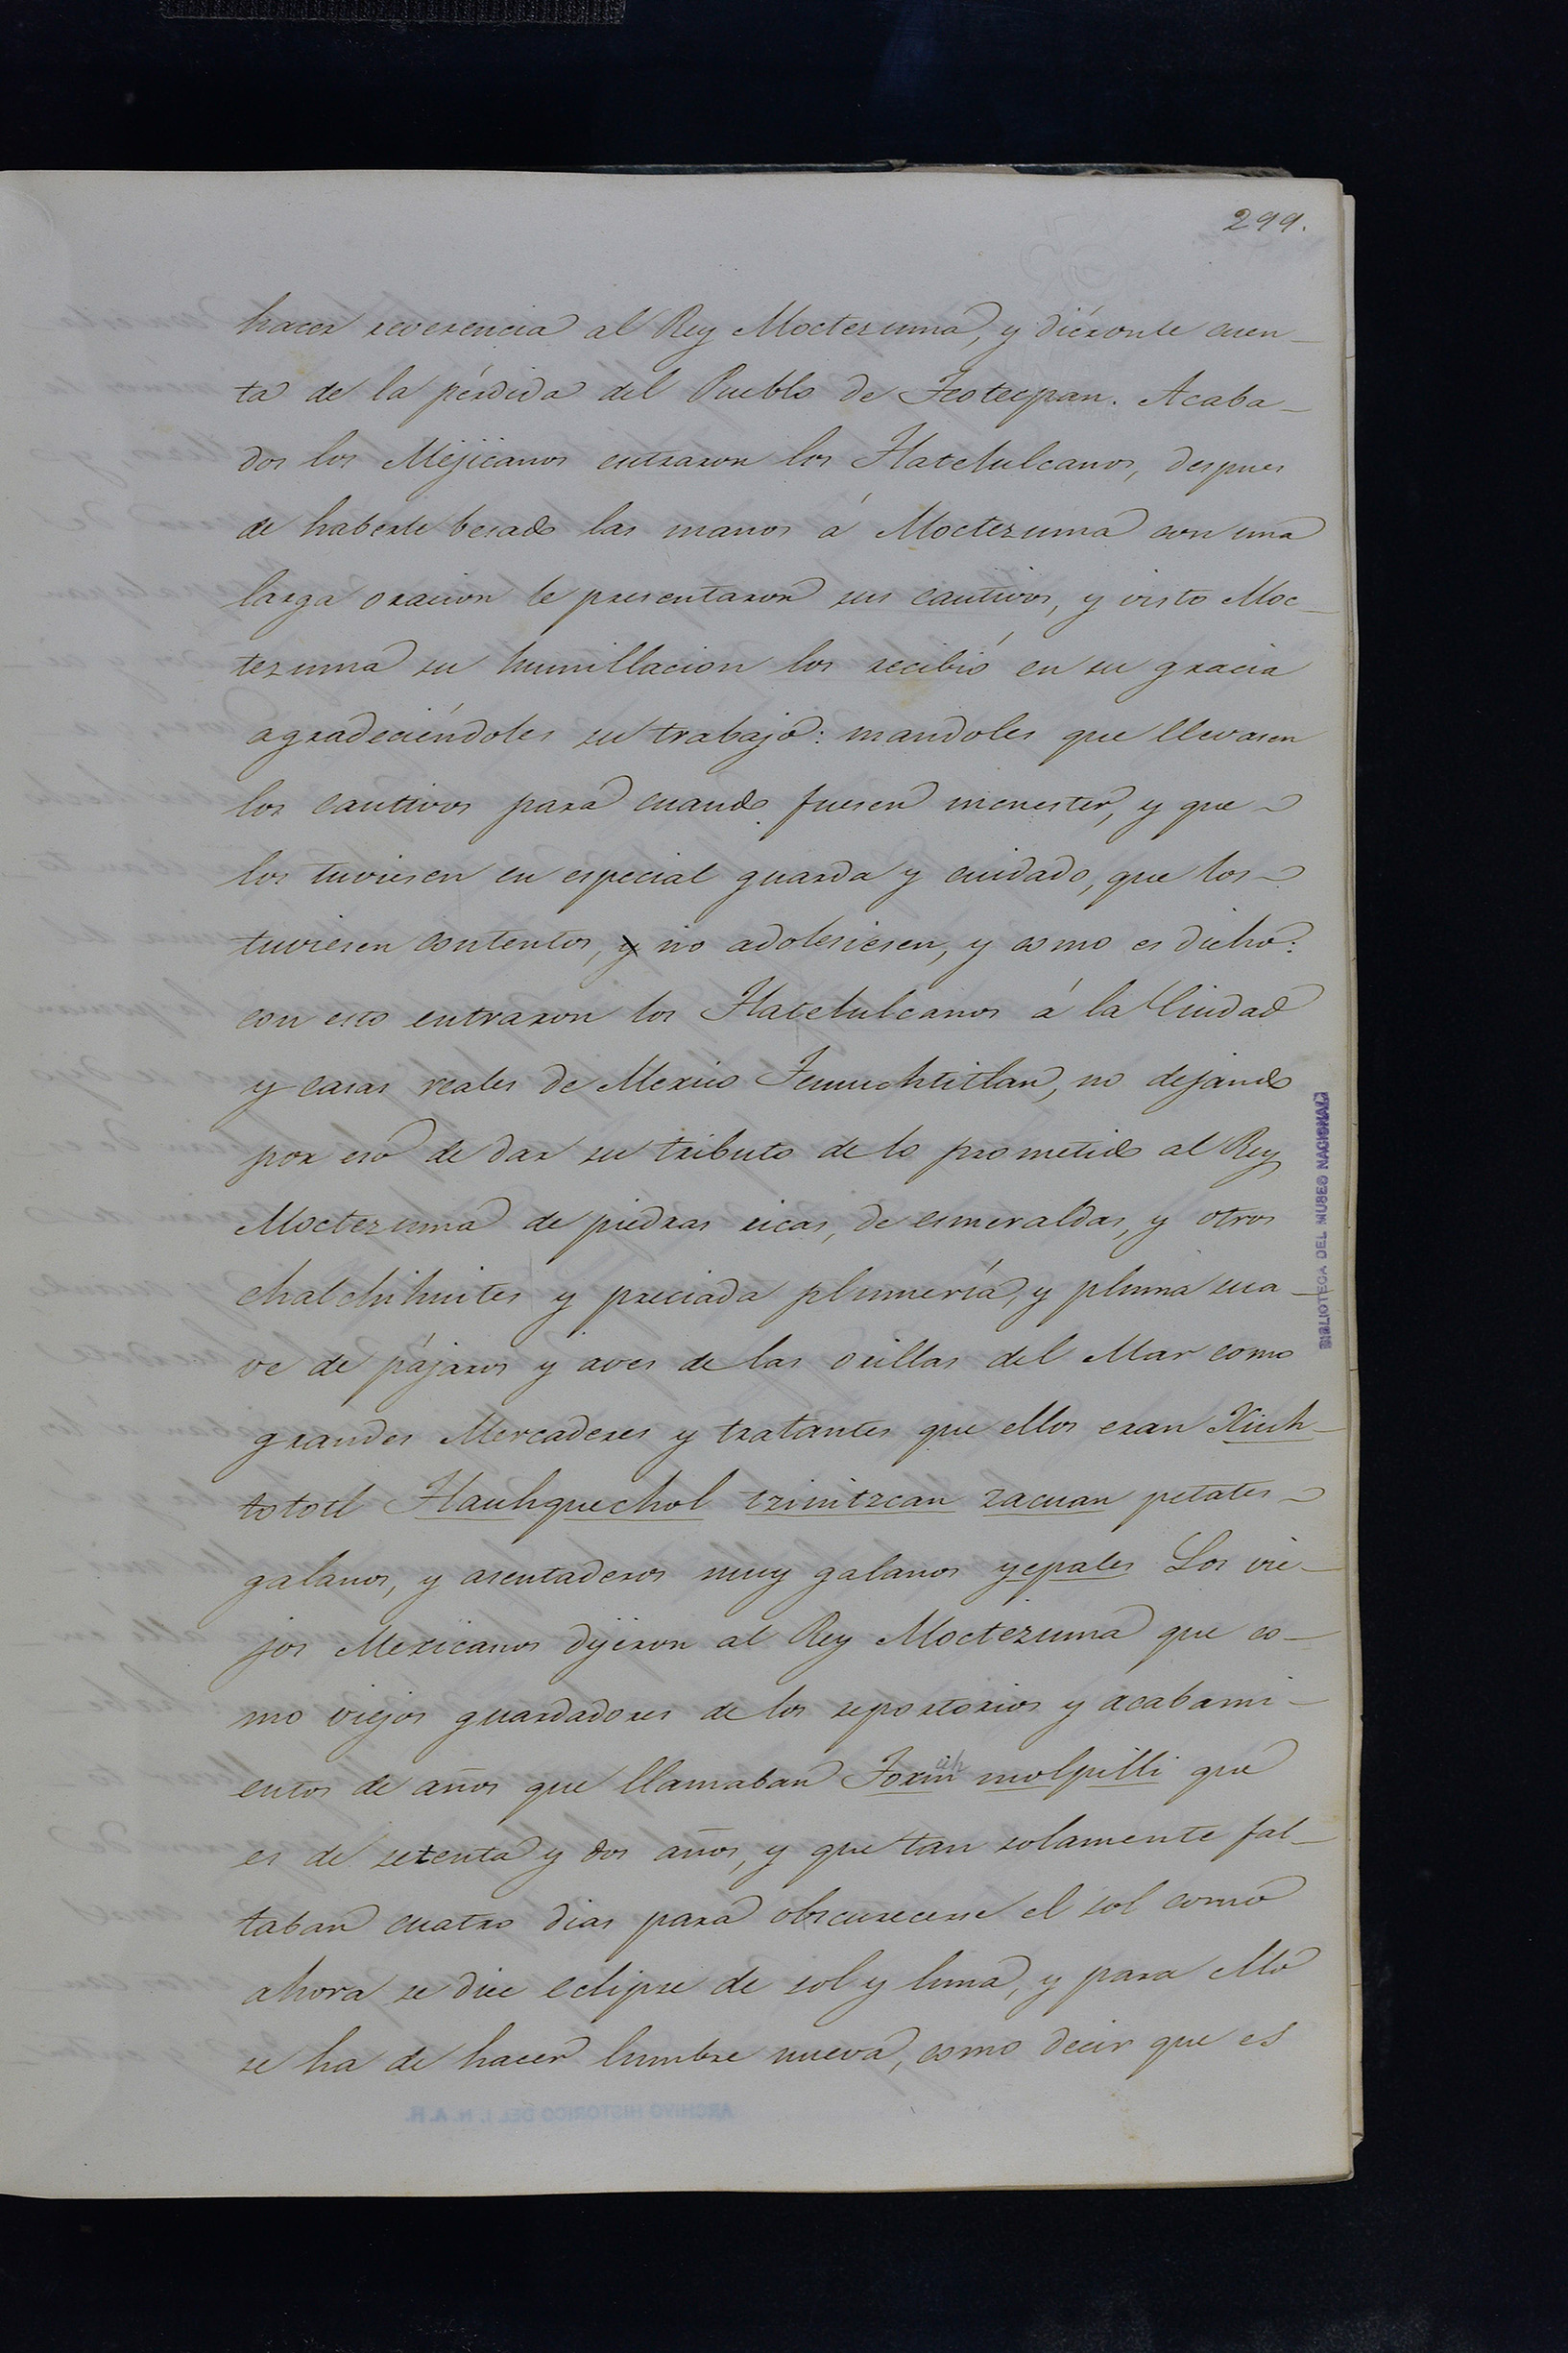 299.
hacer reverencia al Rey Moctezuma, y diéronle cuen-
ta de la pérdida del Pueblo de Teotecpan. Acaba-
dos los Mejicanos entraron los Tlatelulcanos, despues
de haberle besado las manos á Moctezuma con una
larga oracion le presentaron sus cautivos, y visto Moc-
tezuma su humillacion los recibió en su gracia
agradeciéndoles su trabajo: mandoles que llevasen
los cautivos para cuando fuesen menester, y que
los tuviesen en especial guarda y cuidado, que los
tuviesen contentos, y no adolesiesen, y como es dicho:
con esto entraron los Tlatelulcanos á la Ciudad
y casas reales de Mexico Tenuchtitlan, no dejando
por eso de dar su tributo de lo prometido al Rey
Moctezuma de piedras ricas, de esmeraldas, y otros
chalchihuites y preciada plumería, y pluma sua-
ve de pájaros y aves de las orillas del Mar como
grandes Mercaderes y tratantes que ellos eran Xiuh-
tototl Tlauhquechol tzinitzcan zacuan petates
galanos, y asentaderos muy galanos yepales Los vie-
jos Mexicanos dijeron al Rey Moctezuma que co-
mo viejos guardadores de los reportorios y acabami-
entos de años que llamaban Toxiuh molpilli que
es de setenta y dos años, y que tan solamente fal-
taban cuatro dias para obscurecerse el sol como
ahora se dice eclipse de sol y luna, y para ello
se ha de hacer lumbre nueva, como decir que es
BIBLIOTECA DEL MUSEO NACIONAL
ARCHIVO HISTORICO DEL I. N. A. H.